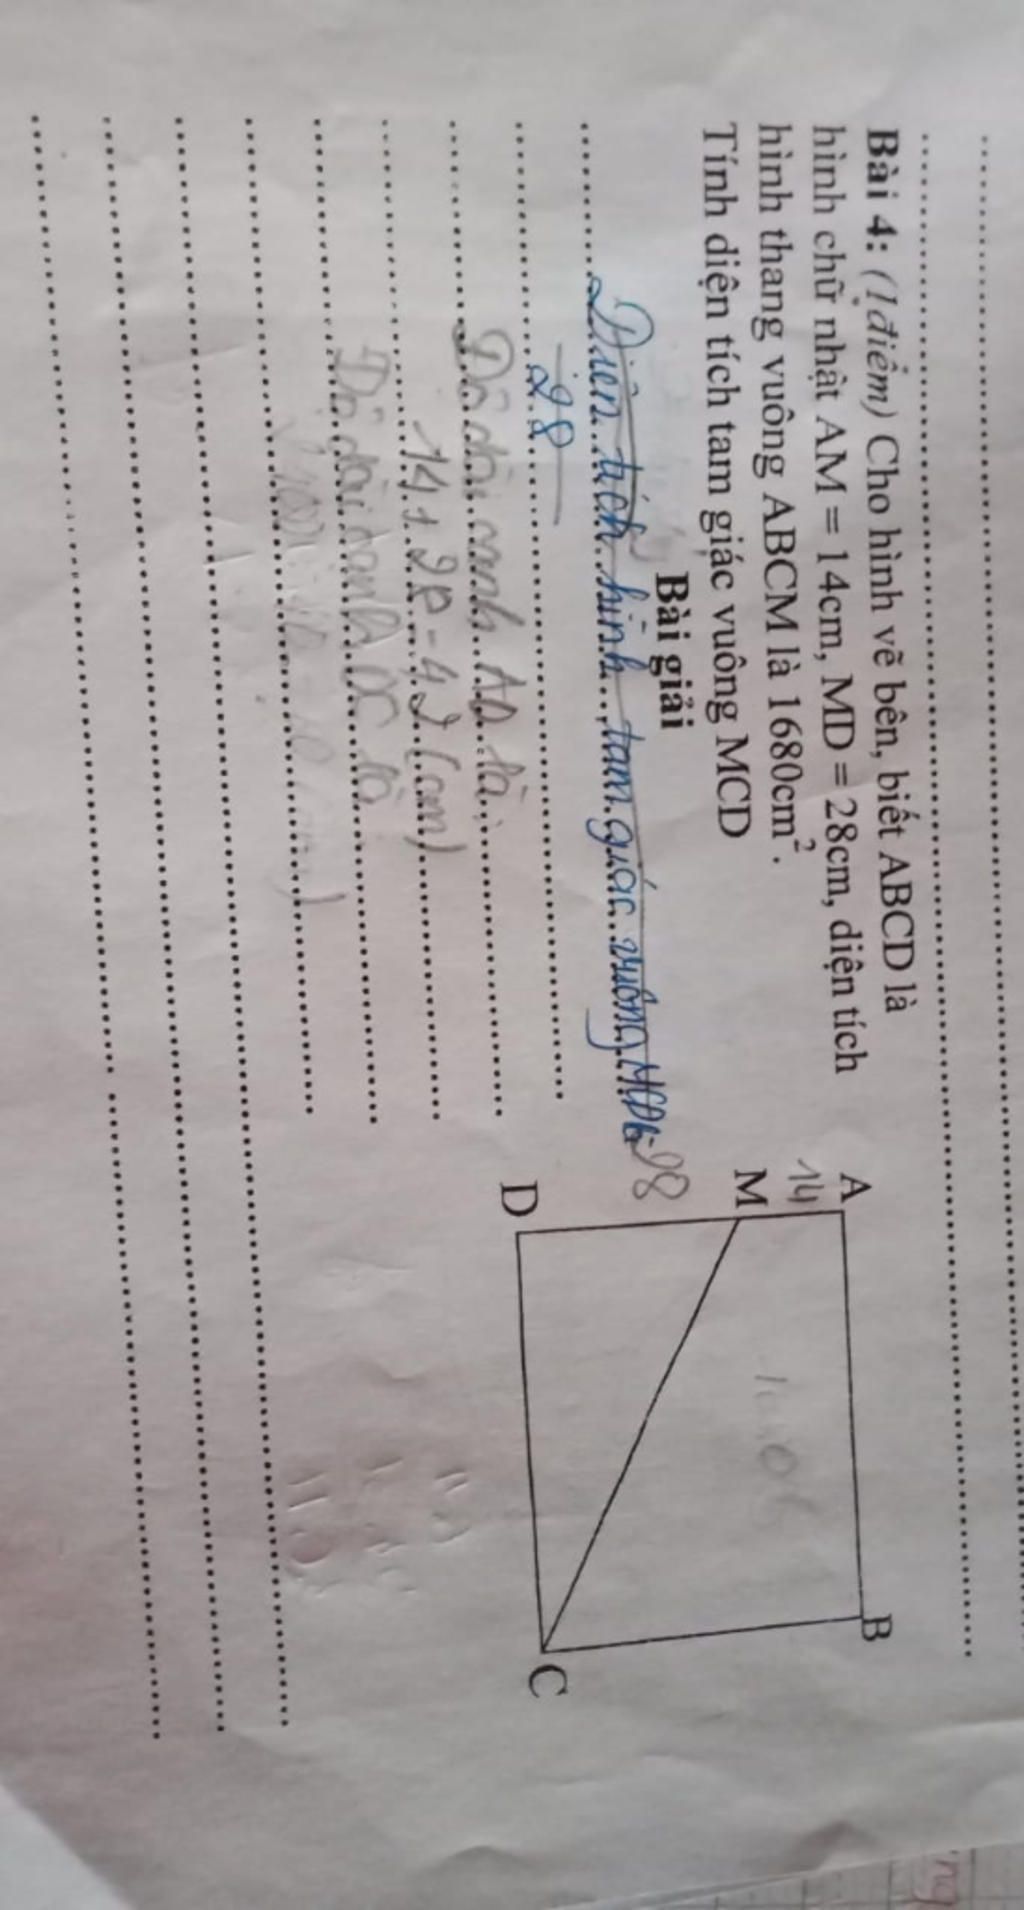 Bài 4: (1điểm) Cho hình vẽ bên, biết ABCD là
hình chữ nhật AM = 14cm, MD = 28cm, diện tích
hình thang vuông ABCM là 1680cm².
Tính diện tích tam giác vuông MCD
A
B
14
M
28
D
C
Bài giải
Diện tích hình tam giác vuông MCD là
28
Độ dài cạnh AD là:
14 + 28 = 42 (cm)
Độ dài cạnh DC là